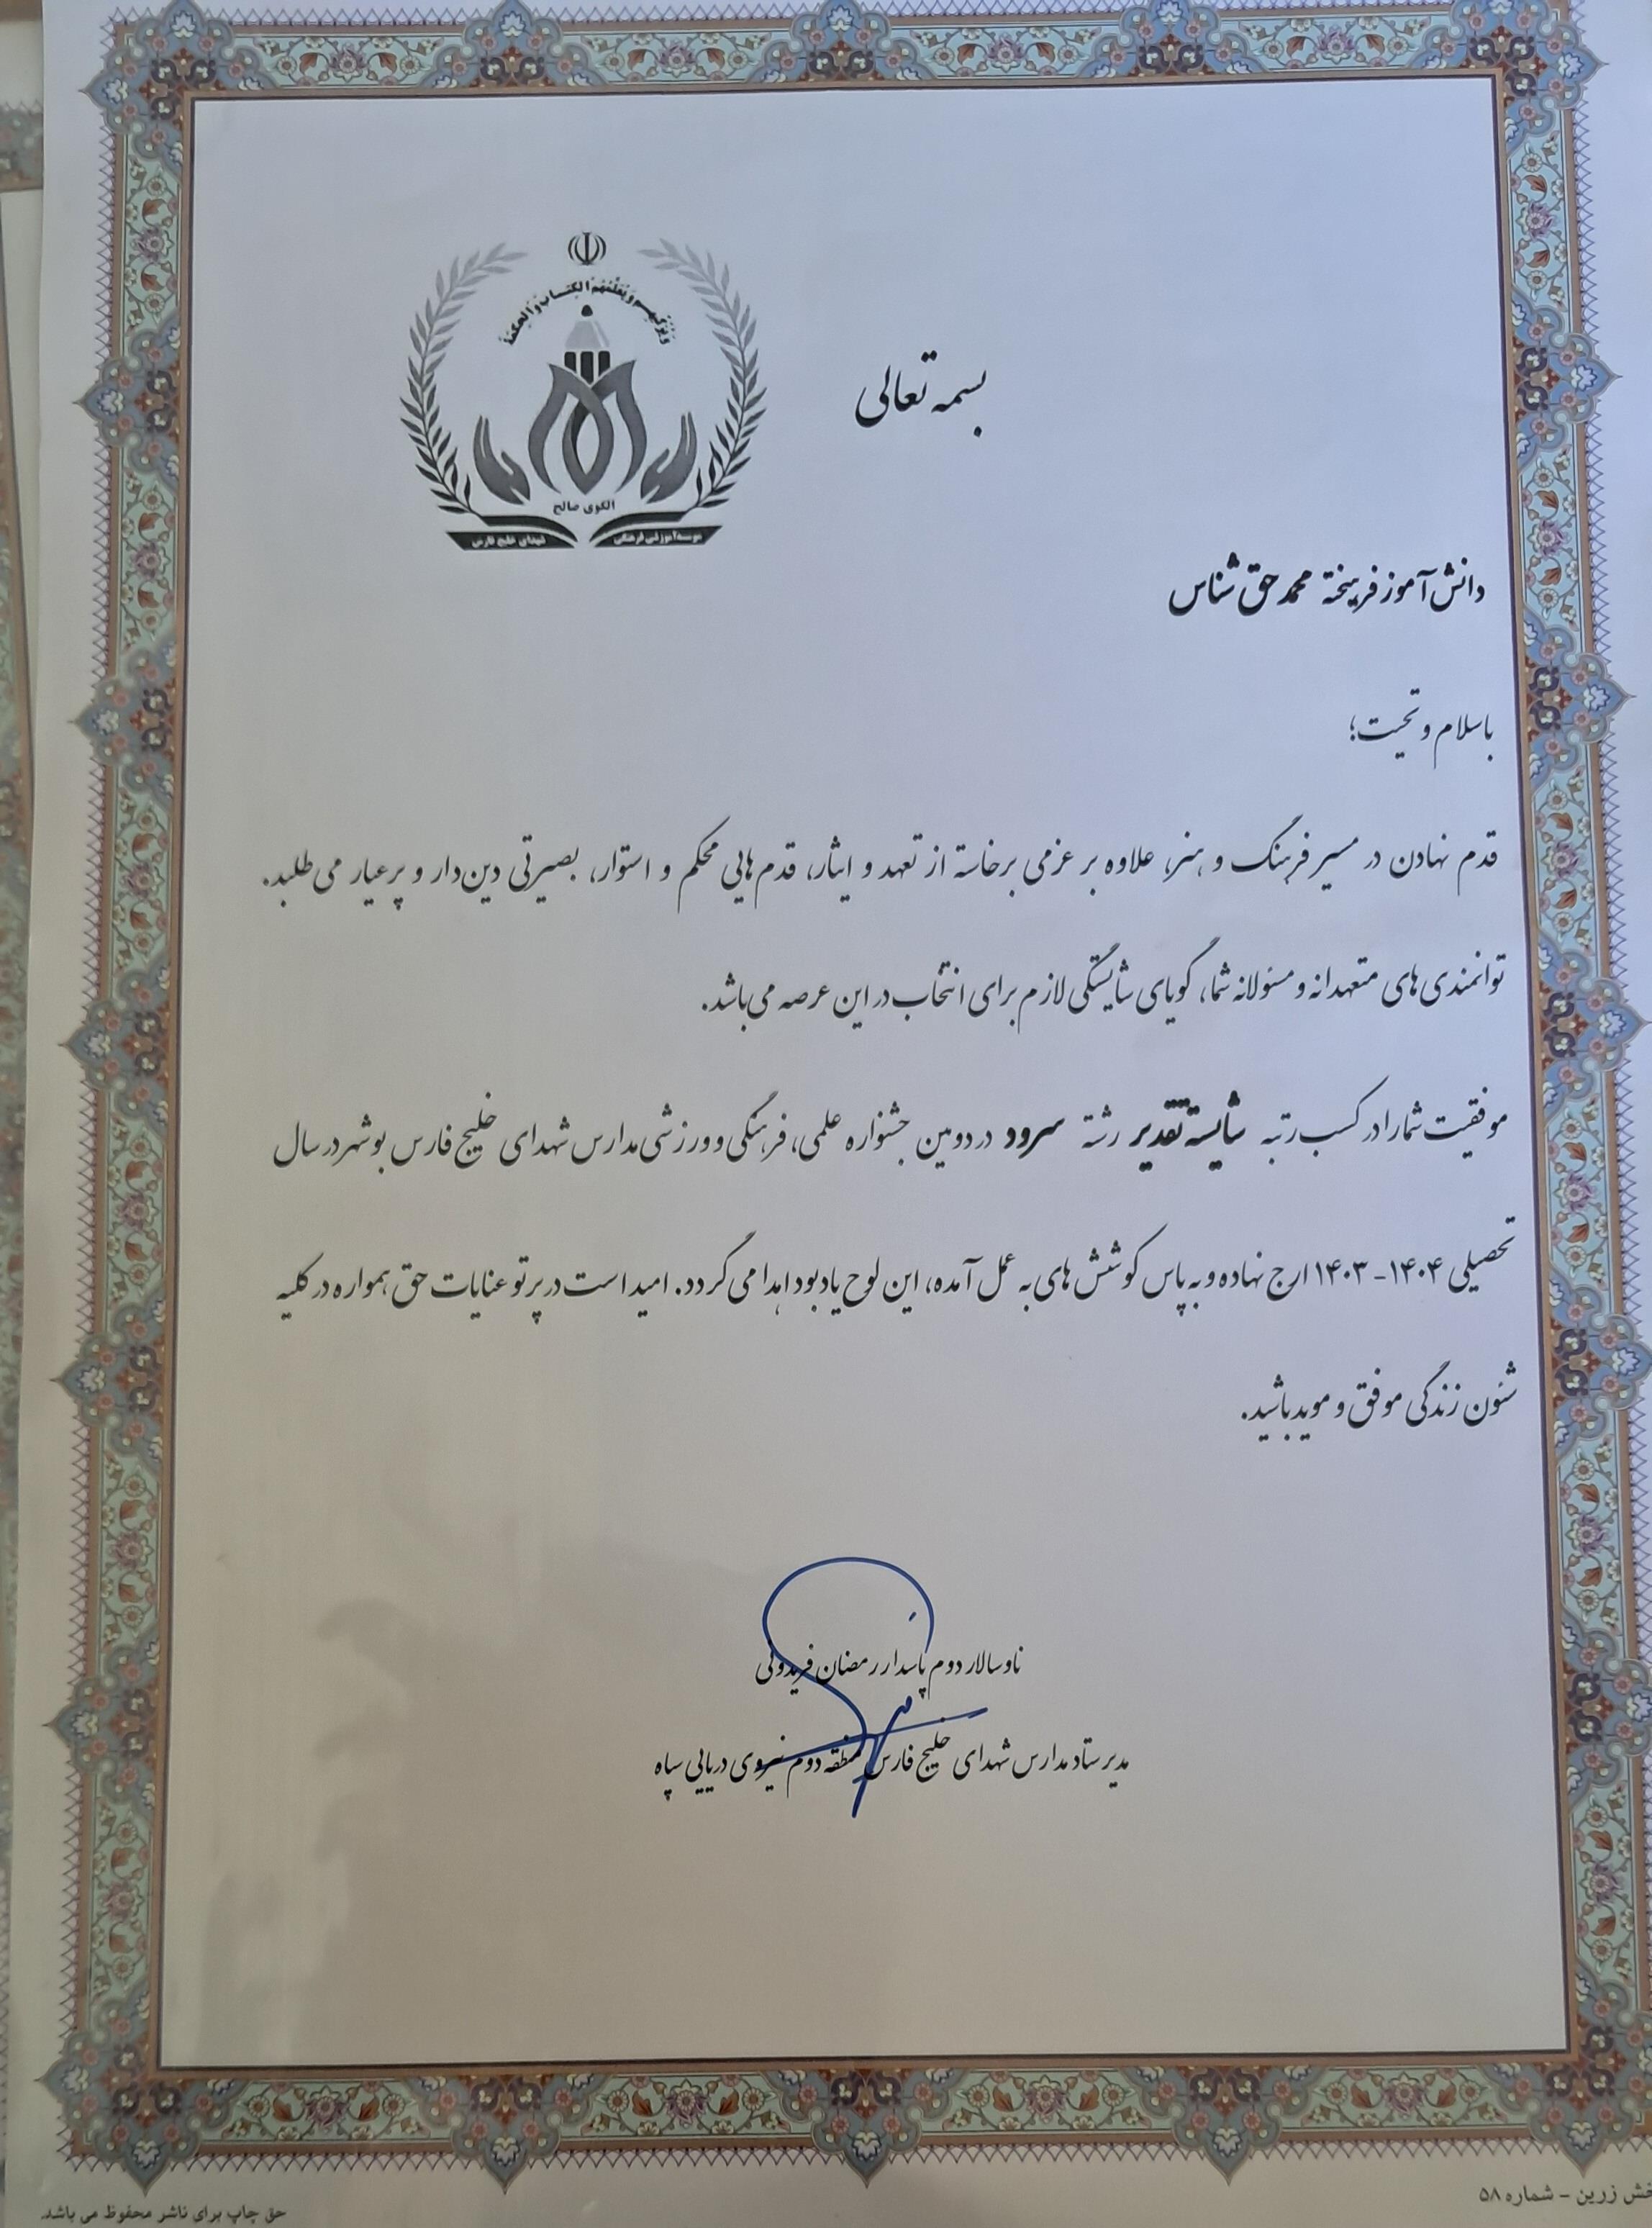 ویزکیهم ویعلمهم الکتاب والحکمة
الگوی صالح
موسسه آموزشی فرهنگی شهدای خلیج فارس
بسمه تعالی
دانش آموز فرهیخته محمد حق شناس
باسلام و تحیت؛
قدم نهادن در مسیر فرهنگ و هنر، علاوه بر عزمی برخاسته از تعهد و ایثار، قدم هایی محکم و استوار، بصیرتی دین دار و پرعیار می طلبد.
توانمندی های متعهدانه و مسئولانه شما، گویای شایستگی لازم برای انتخاب در این عرصه می باشد.
موفقیت شما را در کسب رتبه شایسته تقدیر رشته سرود در دومین جشنواره علمی، فرهنگی و ورزشی مدارس شهدای خلیج فارس بوشهر در سال
تحصیلی ۱۴۰۴- ۱۴۰۳ ارج نهاده و به پاس کوشش های به عمل آمده، این لوح یادبود اهدا می گردد. امید است در پرتو عنایات حق همواره در کلیه
شئون زندگی موفق و موید باشید.
ناوسالار دوم پاسدار رمضان فریدونی
مدیر ستاد مدارس شهدای خلیج فارس منطقه دوم نیروی دریایی سپاه
خش زرین - شماره ۵۸
حق چاپ برای ناشر محفوظ می باشد.